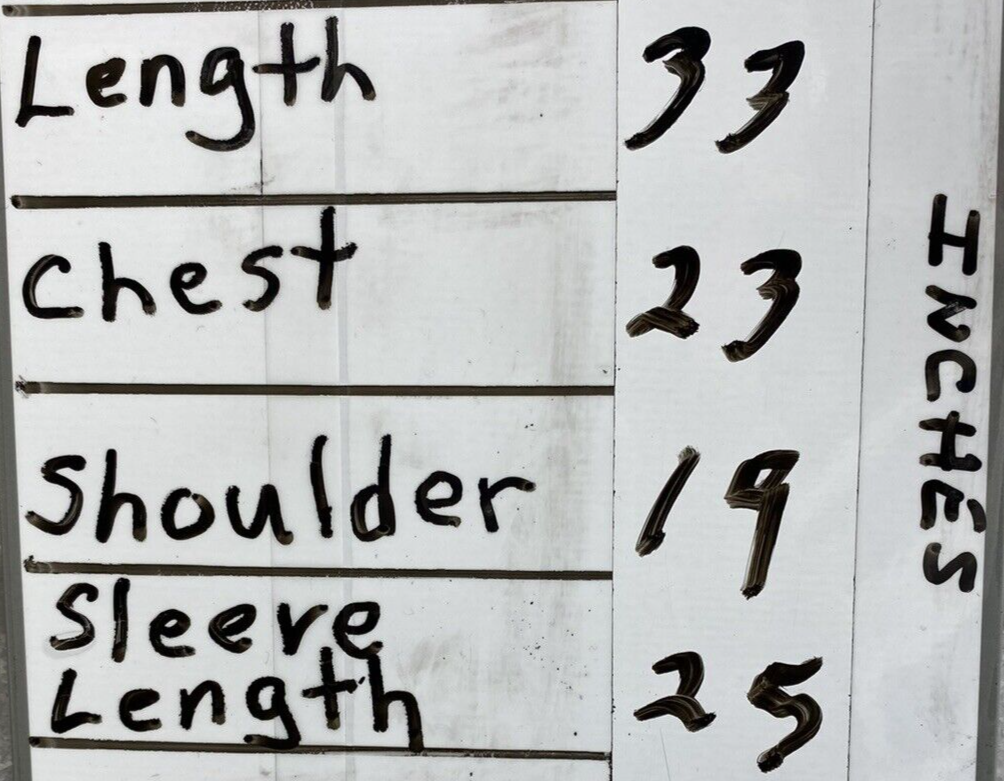 Length 33
Chest 23
Shoulder 19
Sleeve
Length 25
INCHES